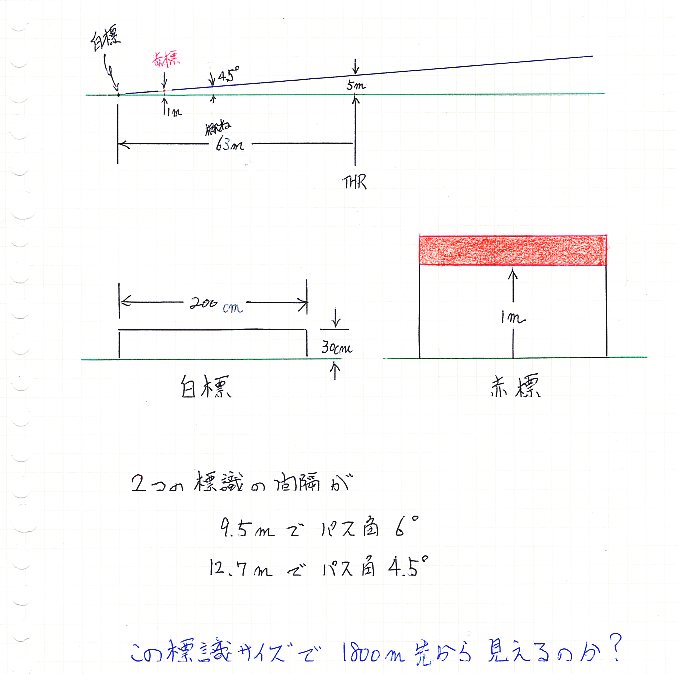 白標
赤標
4.5°
5m
1m
概ね
63m
THR
200cm
30cm
1m
白標
赤標
2つの標識の間隔が
9.5mでパス角6°
12.7mでパス角4.5°
この標識サイズで1800m先から見えるのか?